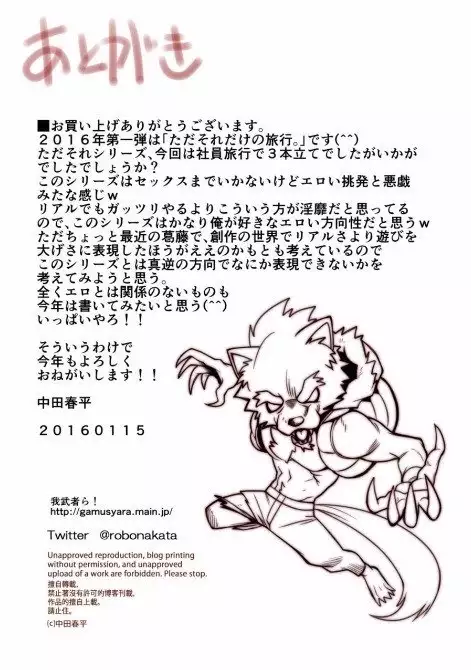 あとがき
■お買い上げありがとうございます。
2016年第一弾は「ただそれだけの旅行。」です(^^)
ただそれシリーズ、今回は社員旅行で3本立てでしたがいかが
でしたでしょうか？
このシリーズはセックスまでいかないけどエロい挑発と悪戯
みたな感じw
リアルでもガッツリやるよりこういう方が淫靡だと思ってる
ので、このシリーズはかなり俺が好きなエロい方向性だと思うw
ただちょっと最近の葛藤で、創作の世界でリアルさより遊びを
大げさに表現したほうがええのかもとも考えているので
このシリーズとは真逆の方向でなにか表現できないかを
考えてみようと思う。
全くエロとは関係のないものも
今年は書いてみたいと思う(^^)
いっぱいやろ！！
そういうわけで
今年もよろしく
おねがいします！！
中田春平
20160115
我武者ら！
http://gamusyara.main.jp/
Twitter @robonakata
Unapproved reproduction, blog printing
without permission, and unapproved
upload of a work are forbidden. Please stop.
擅自轉載．
禁止著沒有許可的博客刊載，
作品的擅自上載。
請止住。
(c)中田春平